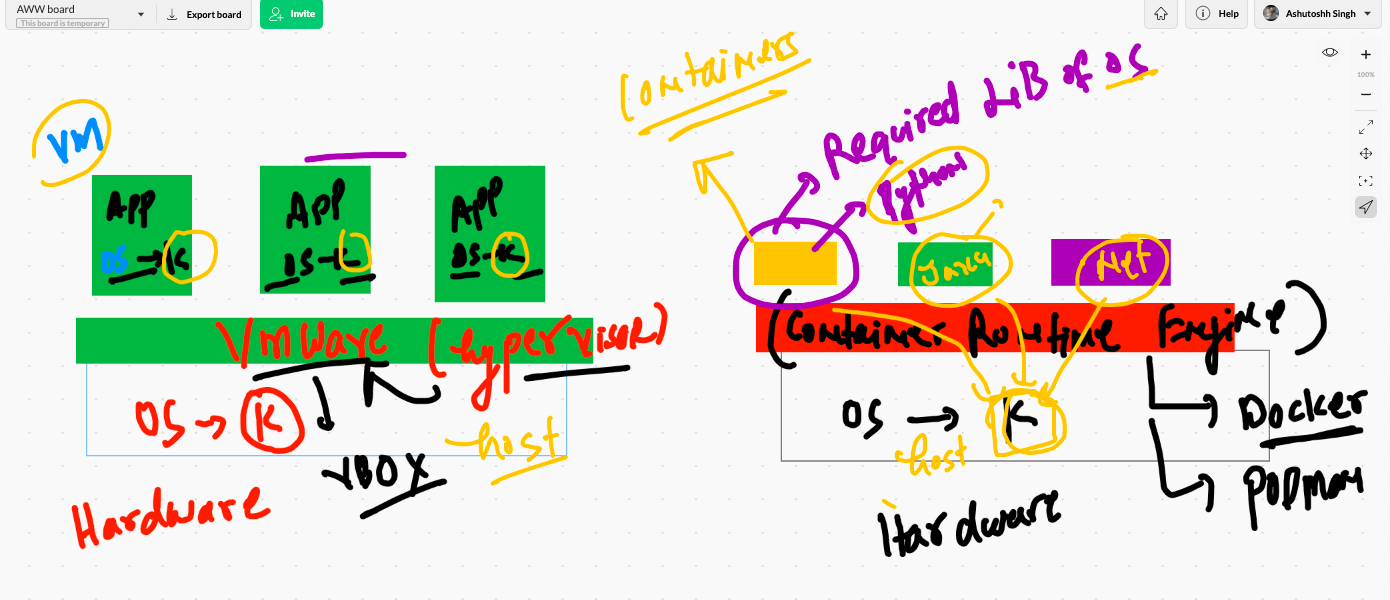 AWW board
This board is temporary
Export board
Invite
Help
Ashutoshh Singh
100%
VM
APP
OS → K
APP
OS - K
APP
OS - K
VMWare (hypervisor)
OS → K
host
VBOX
Hardware
Containers
Required LiB of OS
Python
Java
.Net
(Container Runtime Engine)
OS → K
host
Docker
PODman
Hardware